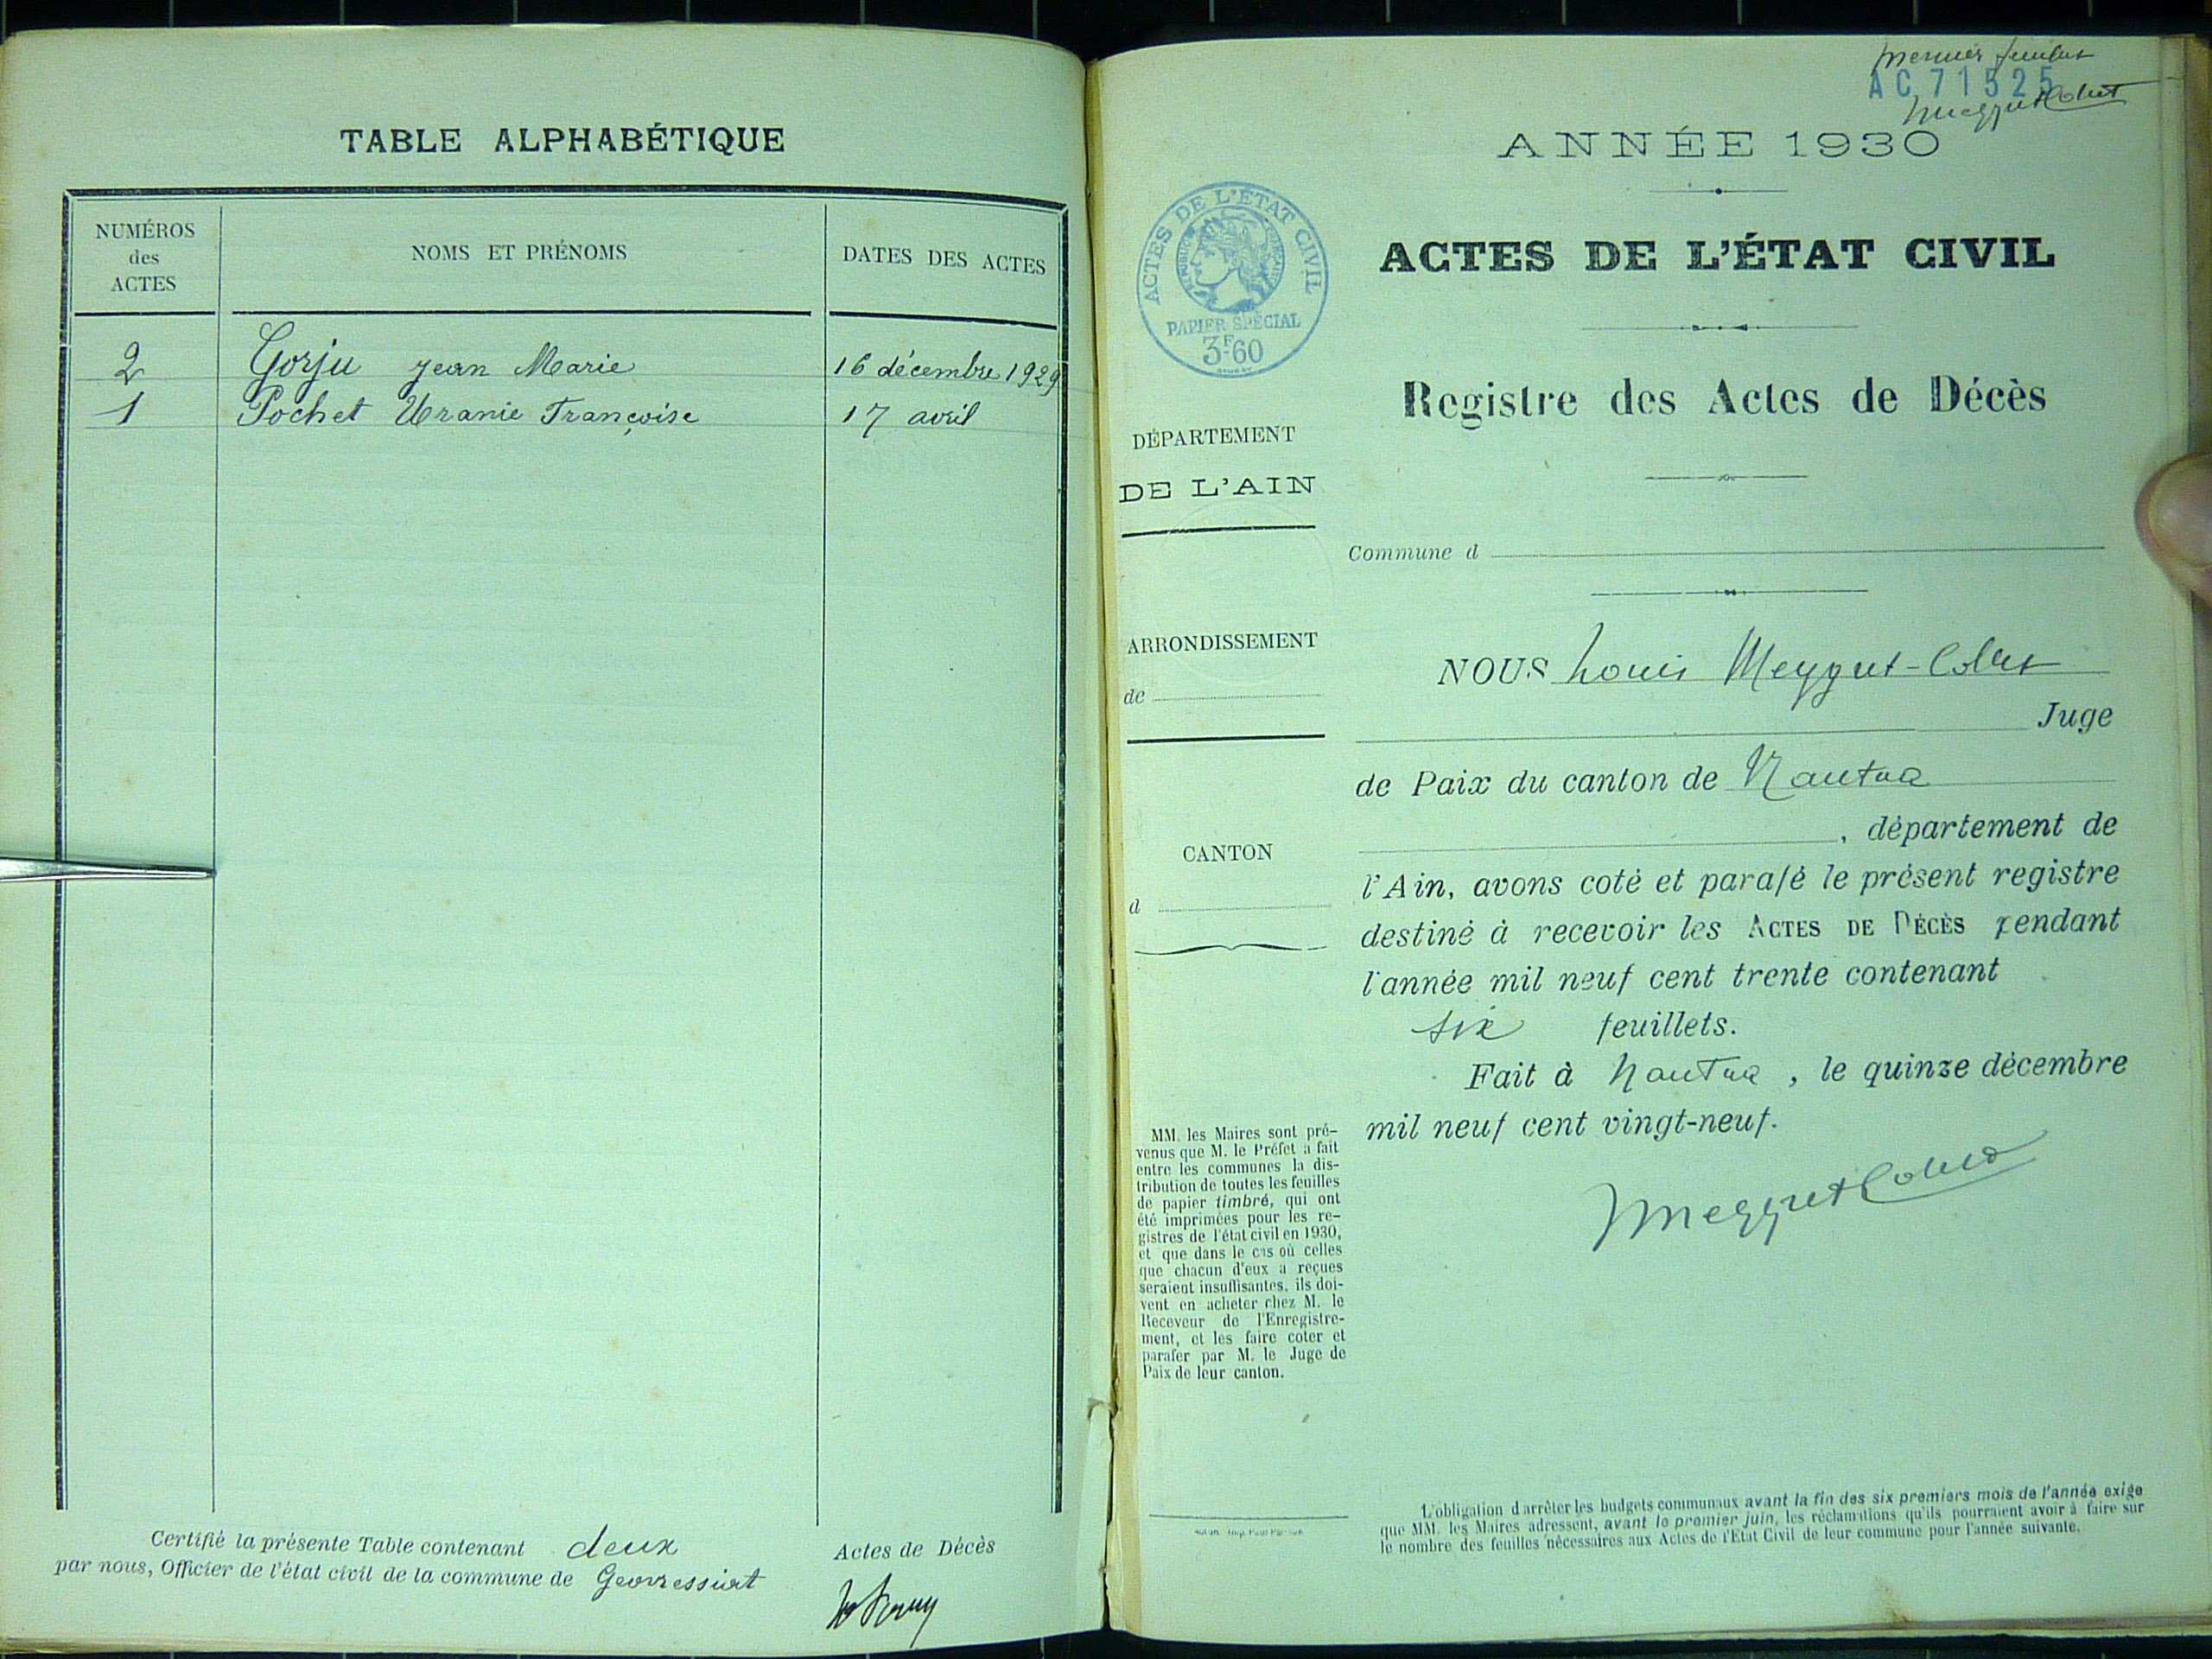 TABLE ALPHABÉTIQUE
NUMÉROS
des
ACTES
NOMS ET PRÉNOMS
DATES DES ACTES
2 Gorju Jean Marie 16 décembre 1929
1 Pochet Uranie Françoise 17 avril
Certifié la présente Table contenant deux Actes de Décès
par nous, Officier de l'état civil de la commune de Geovressiat
premier feuillet
AC 71525
ANNÉE 1930
ACTES DE L'ÉTAT CIVIL
PAPIER SPÉCIAL
3F60
ACTES DE L'ÉTAT CIVIL
Registre des Actes de Décès
DÉPARTEMENT
DE L'AIN
Commune d
ARRONDISSEMENT
de
NOUS Louis
Juge
de Paix du canton de Nantua
, département de
CANTON
d
l'Ain, avons coté et parafé le présent registre
destiné à recevoir les ACTES DE DÉCÈS pendant
l'année mil neuf cent trente contenant
six feuillets.
Fait à Nantua, le quinze décembre
mil neuf cent vingt-neuf.
MM. les Maires sont pré-
venus que M. le Préfet a fait
entre les communes la dis-
tribution de toutes les feuilles
de papier timbré, qui ont
été imprimées pour les re-
gistres de l'état civil en 1930,
et que dans le cas où celles
que chacun d'eux a reçues
seraient insuffisantes, ils doi-
vent en acheter chez M. le
Receveur de l'Enregistre-
ment, et les faire coter et
parafer par M. le Juge de
Paix de leur canton.
L'obligation d'arrêter les budgets communaux avant la fin des six premiers mois de l'année exige
que MM. les Maires adressent, avant le premier juin, les réclamations qu'ils pourraient avoir à faire sur
le nombre des feuilles nécessaires aux Actes de l'Etat Civil de leur commune pour l'année suivante.